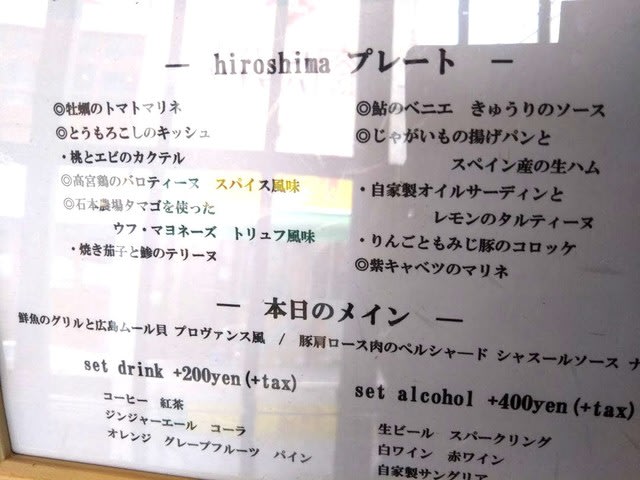 — hiroshima プレート —
◎牡蠣のトマトマリネ
◎とうもろこしのキッシュ
・桃とエビのカクテル
◎高宮鶏のバロティーヌ スパイス風味
◎石本農場タマゴを使った
ウフ・マヨネーズ トリュフ風味
・焼き茄子と鯵のテリーヌ
◎鮎のベニエ きゅうりのソース
◎じゃがいもの揚げパンと
スペイン産の生ハム
・自家製オイルサーディンと
レモンのタルティーヌ
・りんごともみじ豚のコロッケ
◎紫キャベツのマリネ
— 本日のメイン —
鮮魚のグリルと広島ムール貝 プロヴァンス風 / 豚肩ロース肉のペルシャード シャスールソース
set drink +200yen(+tax)
コーヒー 紅茶
ジンジャーエール コーラ
オレンジ グレープフルーツ パイン
set alcohol +400yen(+tax)
生ビール スパークリング
白ワイン 赤ワイン
自家製サングリア